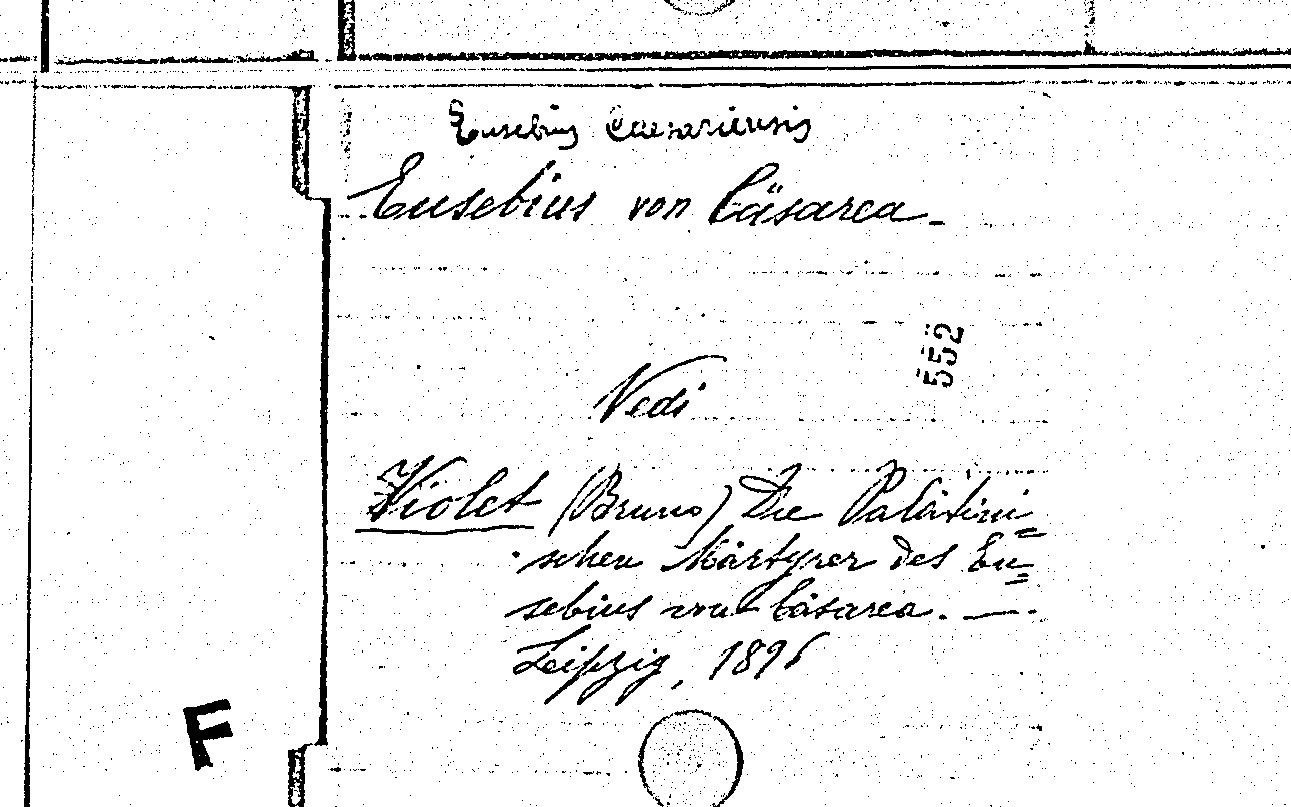 Eusebius Caesariensis
Eusebius von Cäsarea.
552
Vedi
Violet (Bruno) Die Palästini=
schen Märtyrer des Eu=
sebius von Cäsarea. —.
Leipzig, 1896
F